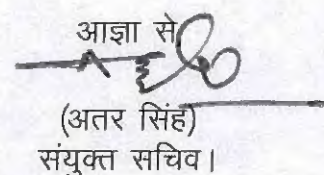 आज्ञा से
(अतर सिंह)
संयुक्त सचिव।